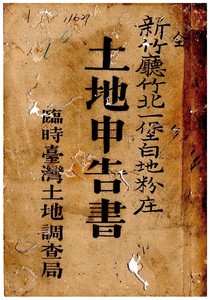 全
新竹廳竹北一堡白地粉庄
土地申告書
臨時臺灣土地調查局